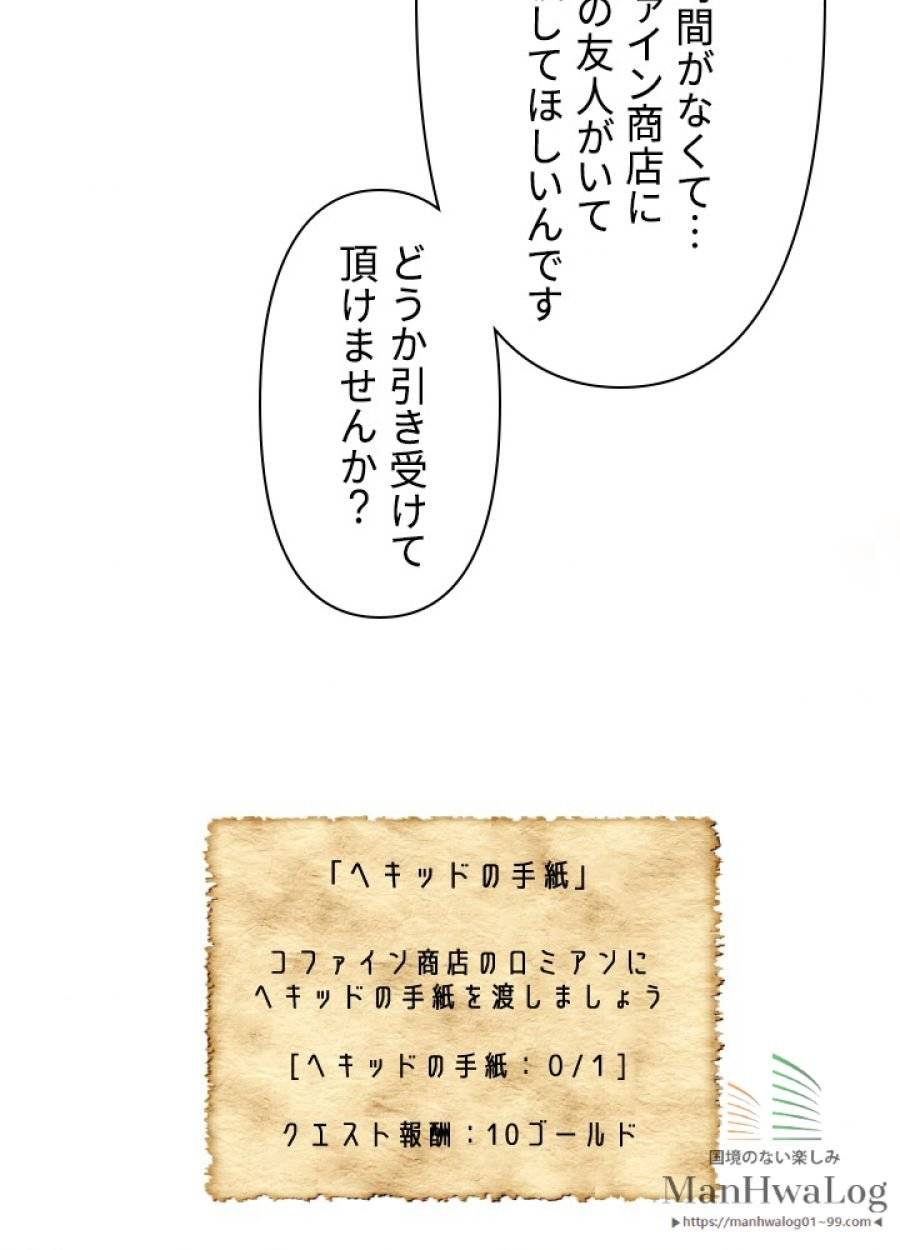 間がなくて…
ァイン商店に
の友人がいて
してほしいんです
どうか引き受けて
頂けませんか?
「ヘキッドの手紙」
コファイン商店のロミアンに
ヘキッドの手紙を渡しましょう
[ヘキッドの手紙:0/1]
クエスト報酬:10ゴールド
国境のない楽しみ
ManHwaLog
▶https://manhwalog01~99.com◀